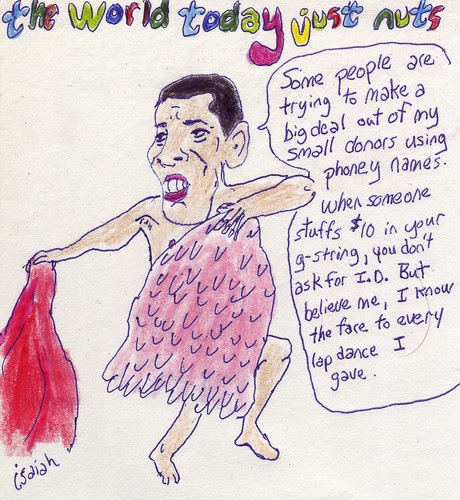 the world today just nuts
Some people are
trying to make a
big deal out of my
small donors using
phoney names.
When someone
stuffs $10 in your
g-string, you don't
ask for I.D. But
believe me, I know
the face to every
lap dance I
gave.
isaiah